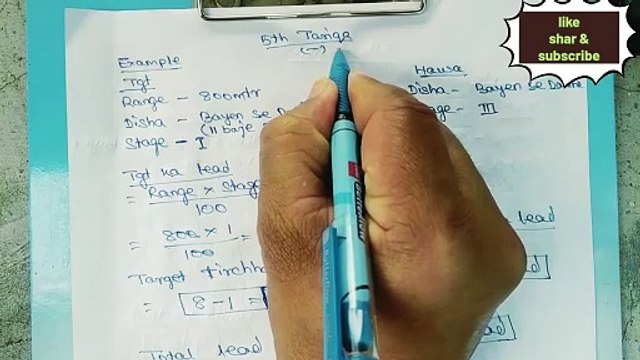 like
shar &
subscribe
5th Tange
(-)
Example
Tgt
Range - 800mtr
Disha - Bayen Se
(11 baje
Stage - I
Hausa
Disha - Bayen Se
III
Tgt ka lead
= Range × Stage
100
= 800 × 1 =
100
lead
Target
= 8-1 =
Total lead